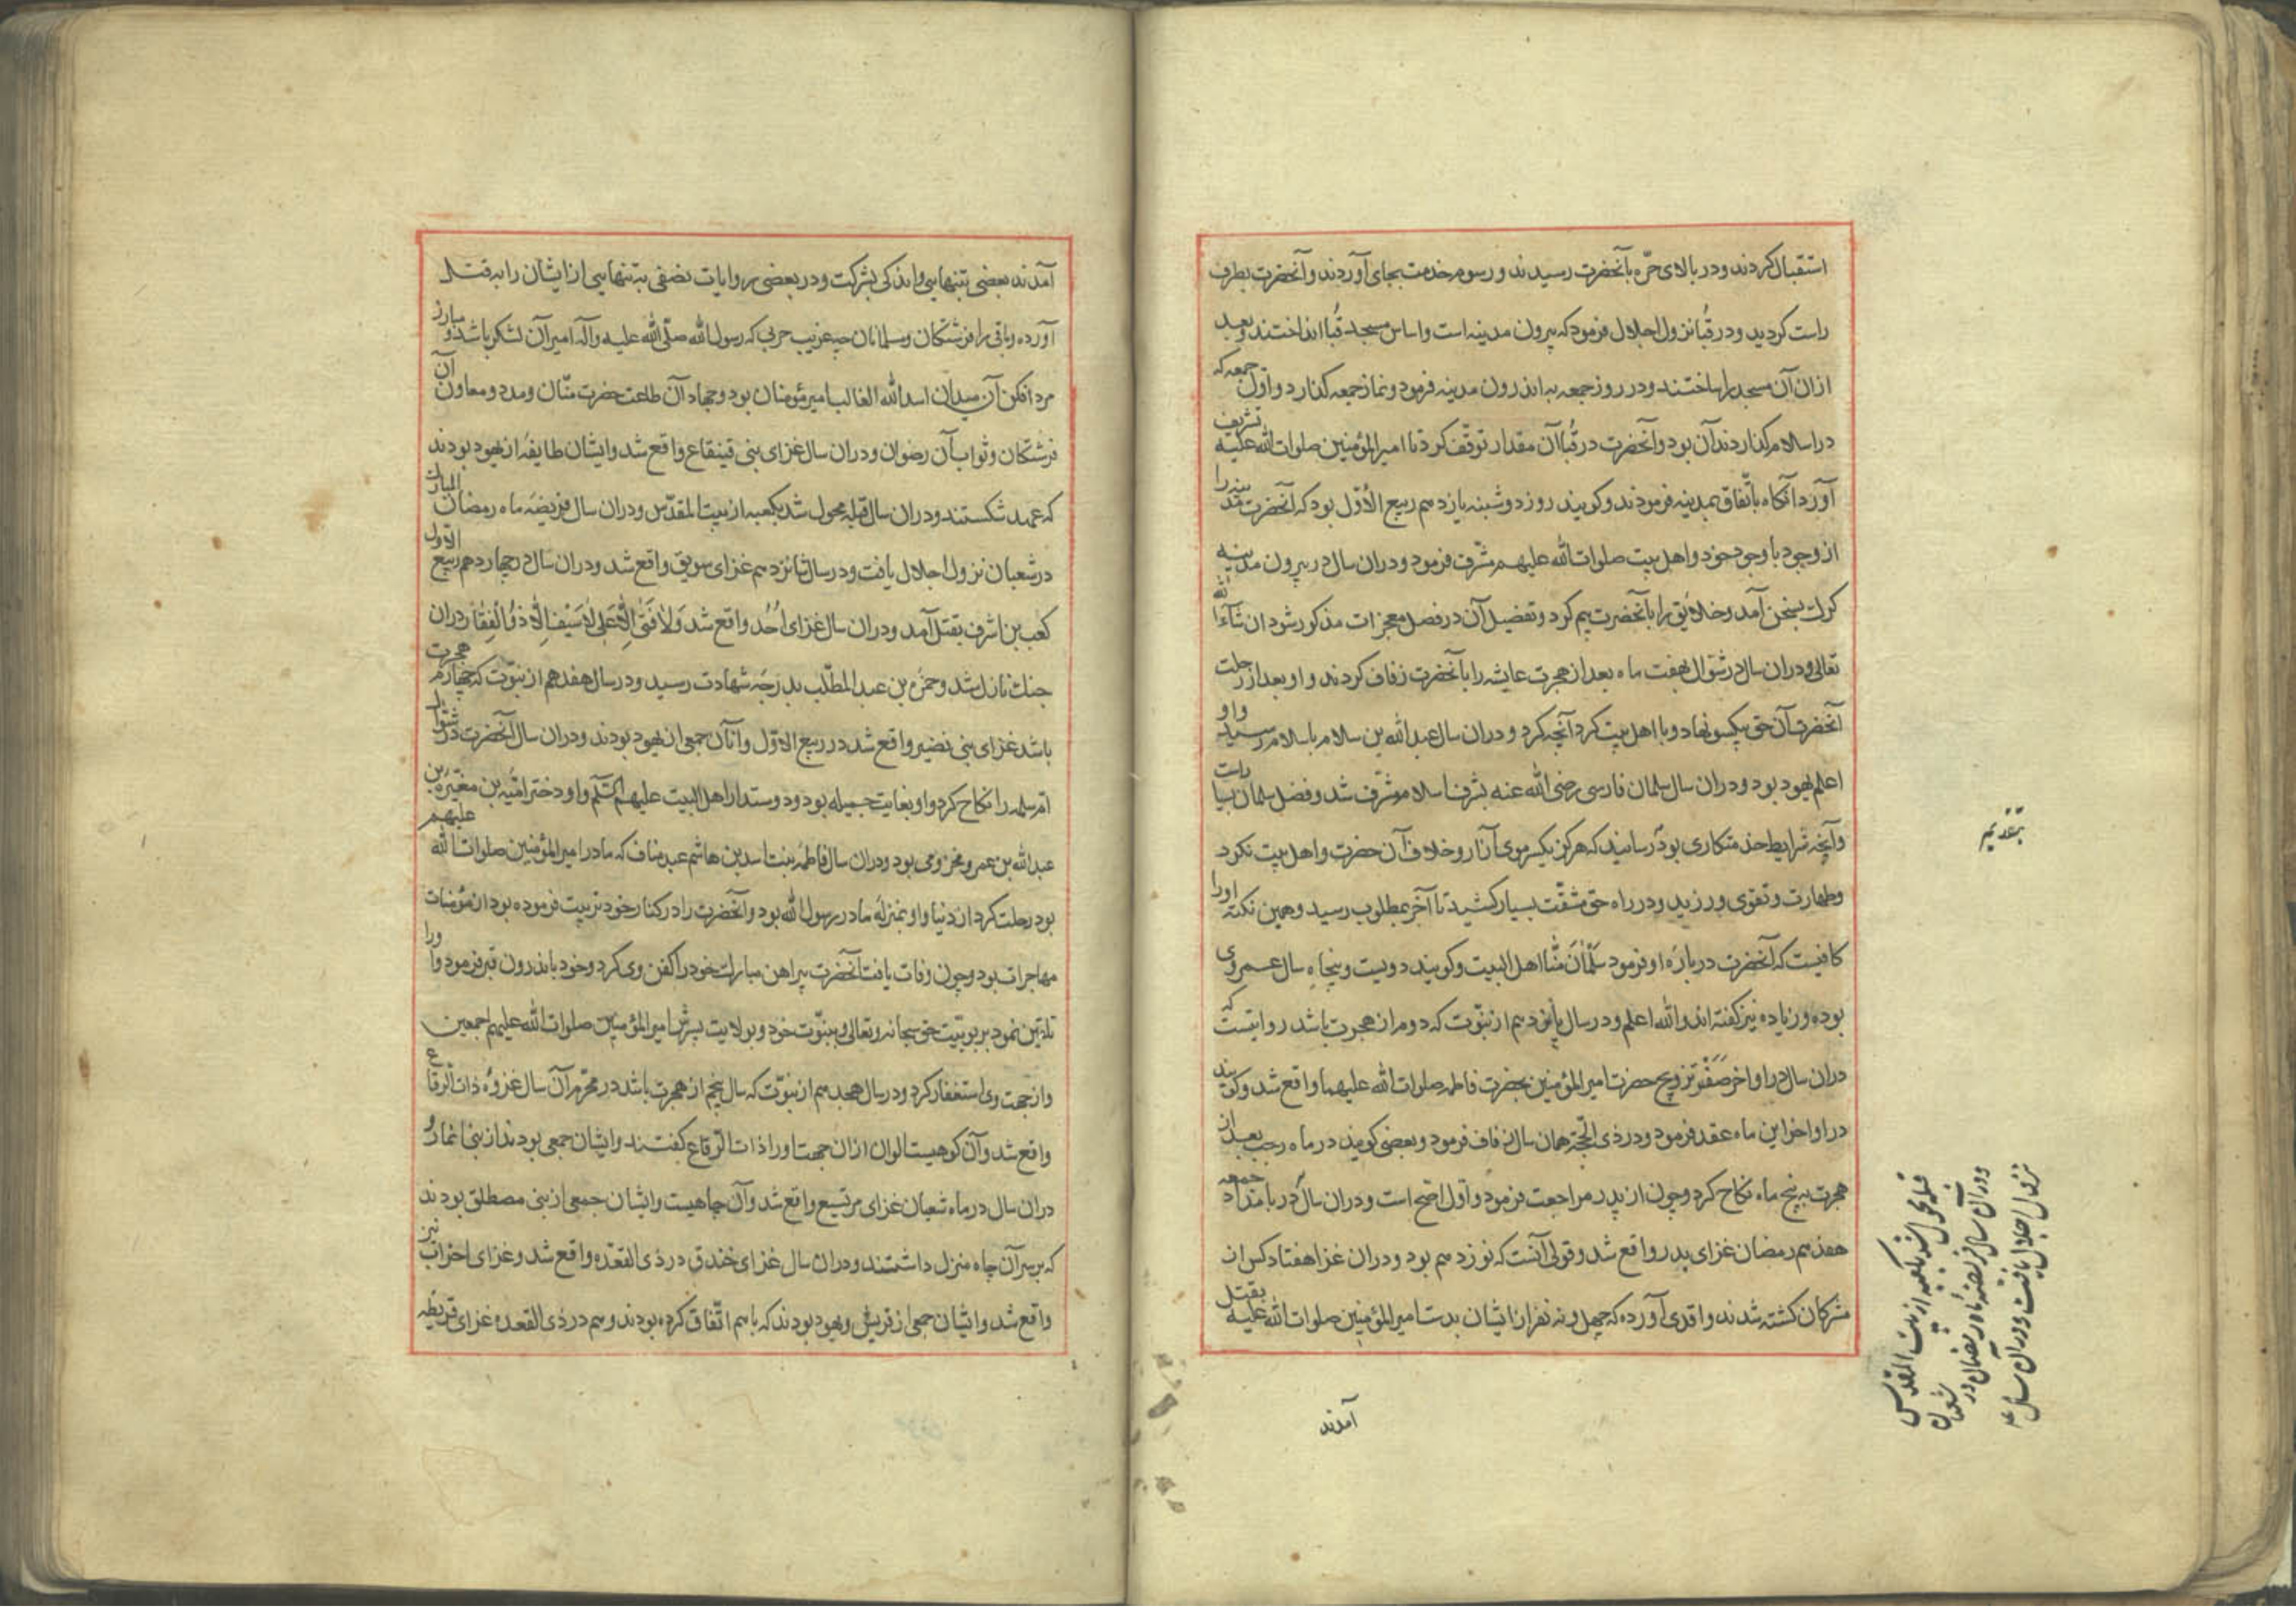 استقبال کردند و در بالای حرّه بآنحضرت رسیدند و رسوم خدمت بجای آوردند و آنحضرت بطرف
راست کردید و در قُبا نزول اجلال فرمود که بیرون مدینه است و اساس مسجد قُبا انداختند و بعد
ازان آن مسجد را ساختند و در روز جمعه به اندرون مدینه فرمود و نماز جمعه کذارد و اوّل جمعه که
در اسلام کذاردند آن بود و آنحضرت در قُبا آن مقدار توقّف کرد تا امیر المؤمنین صلوات الله علیه تشریف
آورد آنکاه باتّفاق بمدینه فرمودند و کویند روز دوشنبه یازدهم ربیع الأوّل بود که آنحضرت مدینه را
از وجود با وجود خود و اهل بیت صلوات الله علیهم مشّرف فرمود و دران سال در بیرون مدینه
کرك بسخن آمد و خلایق را بآنحضرت بیم کرد و تفضیل آن در فصل معجزات مذکور شود ان شآء الله
تعالی و دران سال در شوّال بهفت ماه بعد از هجرت عایشه را بآنحضرت زفاف کردند و او بعد از رحلت
آنحضرت آن حق بیکسو نهاد و با اهل بیت کرد آنچه کرد و دران سال عبد الله بن سلام باسلام رسید و او
اعلم یهود بود و دران سال سلمان فارسی رضی الله عنه بشرف اسلام مشرّف شد و فضل سلمان بسیار است
و آنچه شرایط خدمتکاری بود رسانید که هرکز بیکسر موی آزار و خلاف آن حضرت و اهل بیت نکرد
و طهارت و تقوی ورزید و در راه حق مشقّت بسیار کشید تا آخر بمطلوب رسید و همین نکته او را
کافیست که آنحضرت درباره او فرمود سَلْمٰانُ مِنّٰا اهل البیت و کویند دویست و پنجاه سال عمر وی
بوده و زیاده نیز کفته اند و الله اعلم و در سال پانزدهم از نبوّت که دوم از هجرت باشد روایتست که
دران سال در اواخر صَفَر تزویج حضرت امیر المؤمنین بحضرت فاطمه صلوات الله علیهما واقع شد و کویند
در اواخر این ماه عقد فرمود و در ذی الحجّة همان سال زفاف فرمود و بعضی کویند در ماه رجب بعد از
هجرت به پنج ماه نکاح کرد و چون از بدر مراجعت فرمود و اول اصّح است و دران سال در بامداد جمعه
هفدهم رمضان غزای بدر واقع شد و قولی آنست که نوزدهم بود و دران غزا هفتاد کس از
مشرکان کشته شدند و اقدی آورده که چهل و نه نفر از ایشان بدست امیر المؤمنین صلوات الله علیه بقتل
آمدند
قبله محول شد بکعبه از بیت المقدس
ودر آن سال فریضه ماه رمضان در شعبان
نزول اجلال یافت ودر آن سال
آمدند بعضی بتنهایی و اندکی بشرکت و در بعضی روایات نصفی به تنهایی از ایشان را به قتل
آورده و باقی را فرشتکان و مسلمانان چه عزیب حربی که رسول الله صلّی الله علیه و آله امیر آن لشکر باشد و مبارز
مرد افکن آن میدان اسد الله الغالب امیر مؤمنان بود و جهاد آن طاعت حضرت منّان و مدد و معاون آن
فرشتکان و ثواب آن رضوان و دران سال غزای بنی قینقاع واقع شد و ایشان طایفهٔ از یهود بودند
که عهد شکستند و دران سال قبله محول شد بکعبه از بیت المقدّس و دران سال فریضهٔ ماه رمضان المبارك
در شعبان نزول اجلال یافت و در سال شانزدهم غزای سویق واقع شد و دران سال در چهاردهم ربیع الاوّل
کعب بن اشرف بقتل آمد و دران سال غزای اُحُد واقع شد وَلٰا فَتٰی اِلّٰا عَلِی لٰا سَیْفَ اِلّٰا ذوُالْفِقٰار دران
جنك نازل شد و حمزه بن عبد المطلّب بدرجهٔ شهادت رسید و در سال هفدهم از نبوّت که چهارم هجرت
باشد غزای بنی نضیر واقع شد در ربیع الاوّل و آنان جمعی از یهود بودند و دران سال آنحضرت در شوال
امّ سلمه را نکاح کرد و او بغایت جمیله بود و دوستدار اهل البیت علیهم السّلم و او دختر امّیه بن مغیره بن
عبد الله بن عمرو مخزومی بود و دران سال فاطمه بنت اسد بن هاشم عبد مناف که مادر امیر المؤمنین صلوات الله علیهم
بود رحلت کرد از دنیا و او بمنزلهٔ مادر رسول الله بود و آنحضرت را در کنار خود تربیت فرموده بود از مؤمنات
مهاجرات بود و چون وفات یافت آنحضرت پیراهن مبارك خود را کفن وی کرد و خود باندرون قبر فرمود و او را
تلقین نمود بربوبّیت حق سبحانه و تعالی و بنبوّت خود و بولایت پسرش امیر المؤمنین صلوات الله علیهم اجمعین
و از جهت وی استغفار کرد و در سال هجدهم از نبوّت که سال پنجم از هجرت باشد در محرّم آن سال غزوهٔ ذات الرّقاع
واقع شد و آن کوهیست الوان ازان جهت او را ذات الرّقاع کفتند و ایشان جمعی بودند از بنی انمار و
دران سال در ماه شعبان غزای مریسیع واقع شد و آن چاهیست و ایشان جمعی از بنی مصطلق بودند
که بر سر آن چاه منزل داشتند و دران سال غزای خندق در ذی القعده واقع شد و غزای احزاب نیز
واقع شد و ایشان جمعی از قریش و یهود بودند که باهم اتّفاق کرده بودند و هم در ذی القعده غزای قریظه